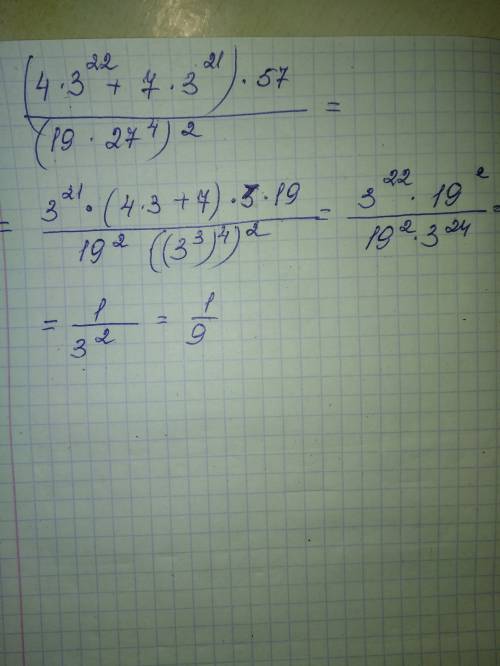 (4·3²² + 7·3²¹)·57 / (19·27⁴)² =
= 3²¹·(4·3+7)·3·19 / 19²((3³)⁴)² = 3²²·19² / 19²·3²⁴ =
= 1/3² = 1/9